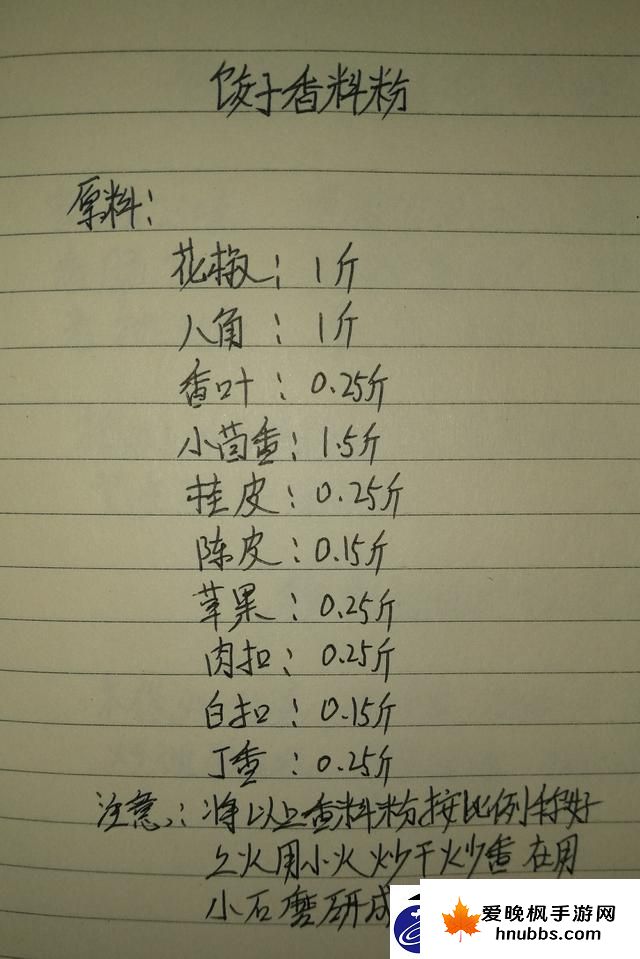 饺子香料粉
原料:
花椒: 1斤
八角: 1斤
香叶: 0.25斤
小茴香: 1.5斤
桂皮: 0.25斤
陈皮: 0.15斤
草果: 0.25斤
肉扣: 0.25斤
白扣: 0.15斤
丁香: 0.25斤
注意: 将以上香料粉按比例称好
上火用小火炒干炒香在用
小石磨研成
爱晚枫手游网
hnubbs.com